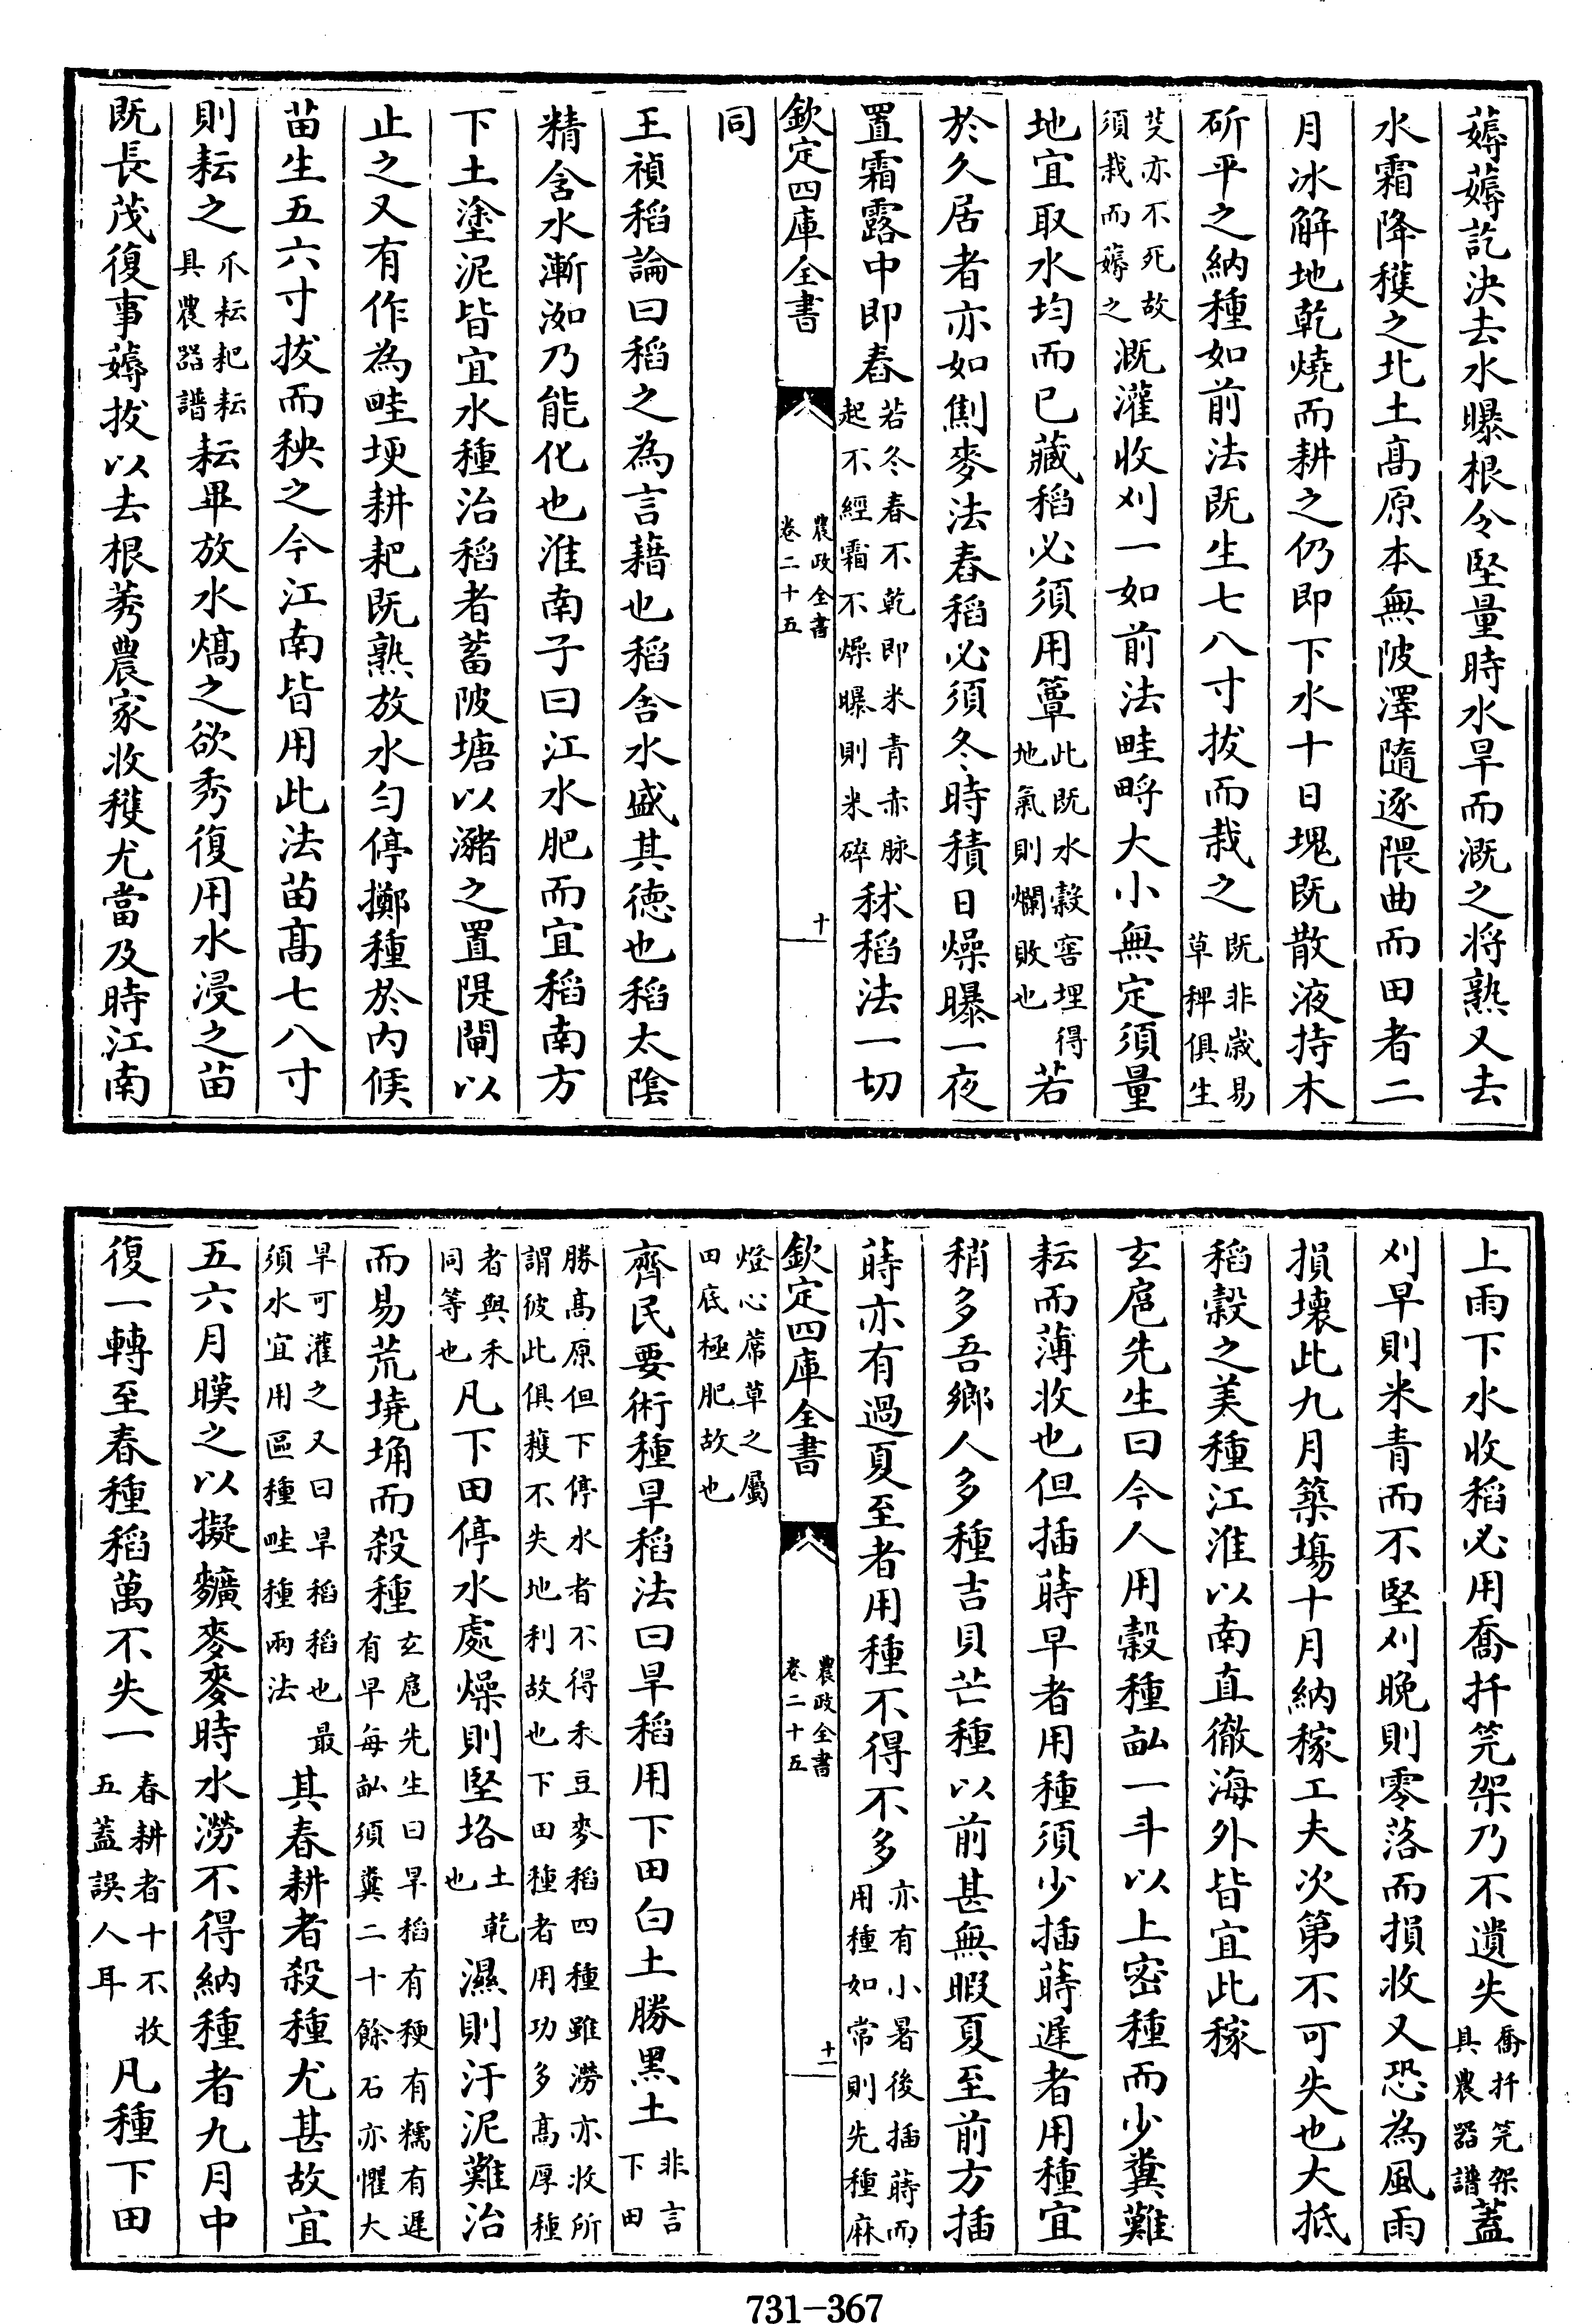 薅薅訖決去水曝根令堅量時水旱而溉之將熟又去
水霜降穫之北土高原本無陂澤隨逐隈曲而田者二
月冰解地乾燒而耕之仍即下水十日塊既散液持木
斫平之納種如前法既生七八寸拔而栽之既非歲易草稗俱生
芟亦不死故須栽而薅之溉灌收刈一如前法畦㽟大小無定須量
地宜取水均而已藏稻必須用簟此既水穀窖埋得地氣則爛敗也若
於久居者亦如劁麥法舂稻必須冬時積日燥曝一夜
置霜露中即舂若冬舂不乾即米青赤脉起不經霜不燥曝則米碎秫稻法一切
欽定四庫全書
農政全書
卷二十五
十
同
王禎稻論曰稻之為言藉也稻含水盛其德也稻太陰
精含水漸洳乃能化也淮南子曰江水肥而宜稻南方
下土塗泥皆宜水種治稻者蓄陂塘以瀦之置隄閘以
止之又有作為畦埂耕耙既熟放水勻停擲種於內候
苗生五六寸拔而秧之今江南皆用此法苗高七八寸
則耘之爪耘耙耘具農器譜耘畢放水熇之欲秀復用水浸之苗
既長茂復事薅拔以去根莠農家收穫尤當及時江南
上雨下水收稻必用喬扦笐架乃不遺失喬扦笐架具農器譜蓋
刈早則米青而不堅刈晚則零落而損收又恐為風雨
損壞此九月築場十月納稼工夫次第不可失也大抵
稻穀之美種江淮以南直徹海外皆宜此稼
玄扈先生曰今人用穀種畝一斗以上密種而少糞難
耘而薄收也但插蒔早者用種須少插蒔遲者用種宜
稍多吾鄉人多種吉貝芒種以前甚無暇夏至前方插
蒔亦有過夏至者用種不得不多亦有小暑後插蒔而用種如常則先種麻
欽定四庫全書
農政全書
卷二十五
十一
燈心蓆草之屬田底極肥故也
齊民要術種旱稻法曰旱稻用下田白土勝黑土非言下田
勝高原但下停水者不得禾豆麥稻四種雖澇亦收所謂彼此俱穫不失地利故也下田種者用功多高厚種
者與禾同等也凡下田停水處燥則堅垎土乾也濕則汙泥難治
而易荒墝埆而殺種玄扈先生曰旱稻有稉有糯有遲有早每畝須糞二十餘石亦懼大
旱可灌之又曰旱稻稻也最須水宜用區種畦種兩法其春耕者殺種尤甚故宜
五六月暵之以擬䵃麥麥時水澇不得納種者九月中
復一轉至春種稻萬不失一春耕者十不收五蓋誤人耳凡種下田
731-367